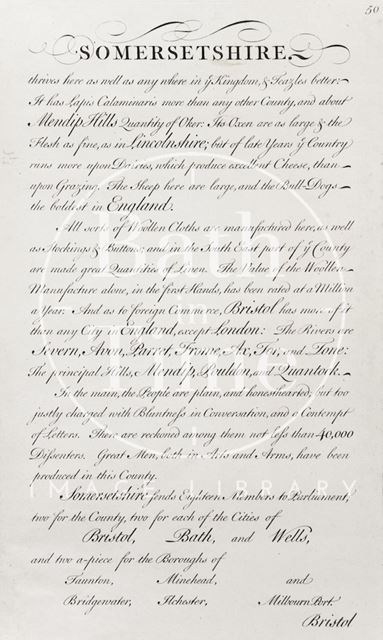 50
SOMERSETSHIRE.
thrives here as well as any where in ye Kingdom, & Teazles better:
It has Lapis Calaminaris more than any other County, and about
Mendip Hills Quantity of Oker. Its Oxen are as large & the
Flesh as fine, as in Lincolnshire; but of late Years ye Country
runs more upon Dairies, which produce excellent Cheese, than
upon Grazing. The Sheep here are large, and the Bull-Dogs
the boldest in England.
All sorts of Woollen Cloths are manufactured here, as well
as Stockings & Buttons; and in the South East part of ye County
are made great Quantities of Linen. The Value of the Woollen
Manufacture alone, in the first Hands, has been rated at a Million
a Year. And as to foreign Commerce, Bristol has more of it
than any City in England, except London: The Rivers are
Severn, Avon, Parret, Frome, Ax, Tor, and Tone:
The principal Hills, Mendip, Pouldon, and Quantock.
In the main, the People are plain, and honesthearted, but too
justly charged with Bluntness in Conversation, and a Contempt
of Letters. There are reckoned among them not less than 40,000
Dissenters. Great Men, both in Arts and Arms, have been
produced in this County.
Somersetshire sends Eighteen Members to Parliament,
two for the County, two for each of the Cities of
Bristol, Bath, and Wells,
and two a-piece for the Boroughs of
Taunton, Minehead, and
Bridgewater, Ilchester, Milbourn Port.
Bristol
Bath
in
Time
IMAGE LIBRARY